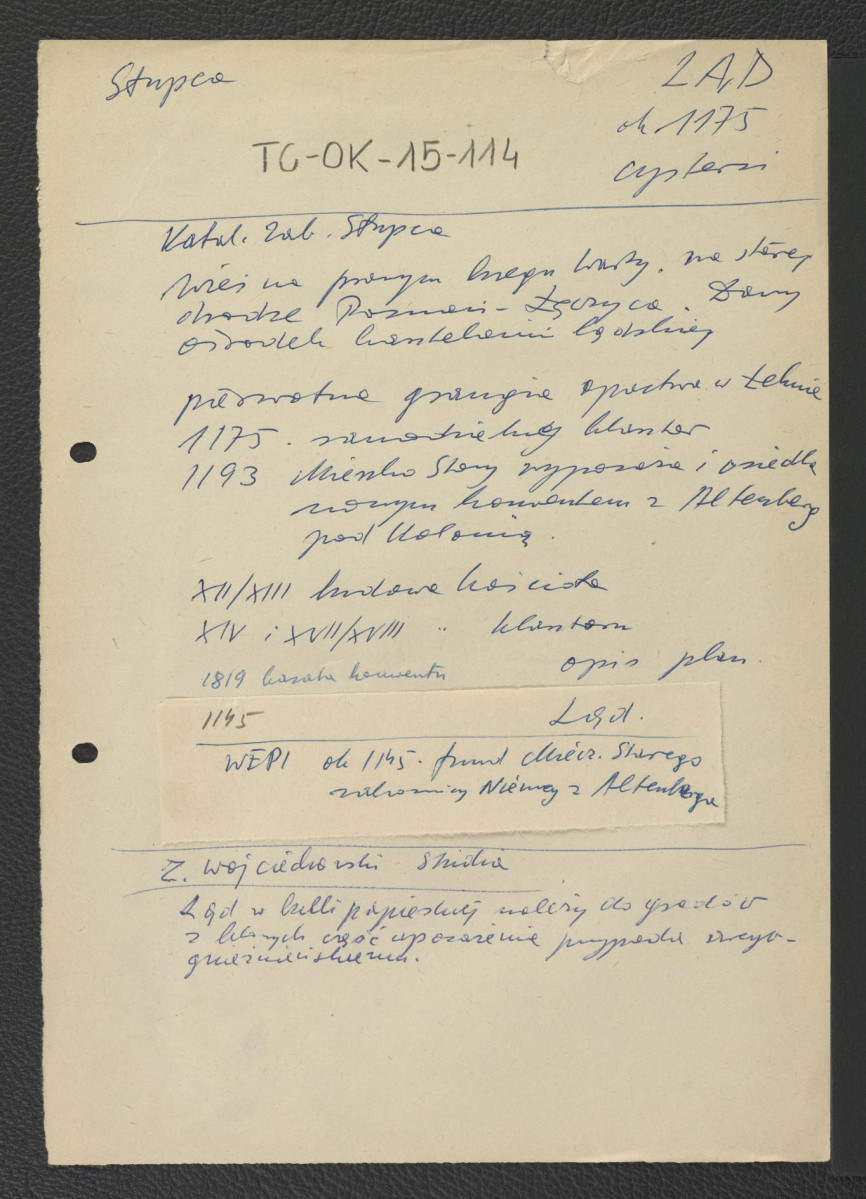 Słupca
LĄD
ok 1175
cystersi
TG-OK-15-114
Katal. Zab. Słupca
Wieś na prawym brzegu Warty, na starej
drodze Poznań - Łęczyca. Dawny
ośrodek kasztelanii lądzkiej
pierwotna grangia opactwa w Łeknie
1175. samodzielny klasztor
1193 Mieszko Stary wyposaża i osiedla
nowym konwentem z Altenberg
pod Kolonią.
XII/XIII budowa kościoła
XIV i XVII/XVIII " klasztoru
opis plan
1819 kasata konwentu
1145 Ląd.
WEPI ok 1145. fund Miecz. Starego
zakonnicy Niemcy z Altenberga
Z. Wojciechowski Studia
Ląd w bulli papieskiej należy do grodów
z których część uposażenia przypada arcyb-
gnieźnieńskiemu.